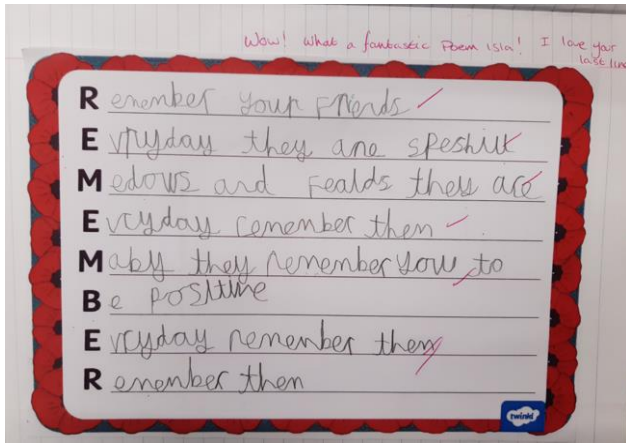 Wow! What a fantastic Poem Isla! I love your
last line
Remember your Friends
Evryday they are speshill
Medows and Fealds they are
Evryday remember them
Maby they remember you to
Be positive
Evryday remember them
Remember them
twinkl